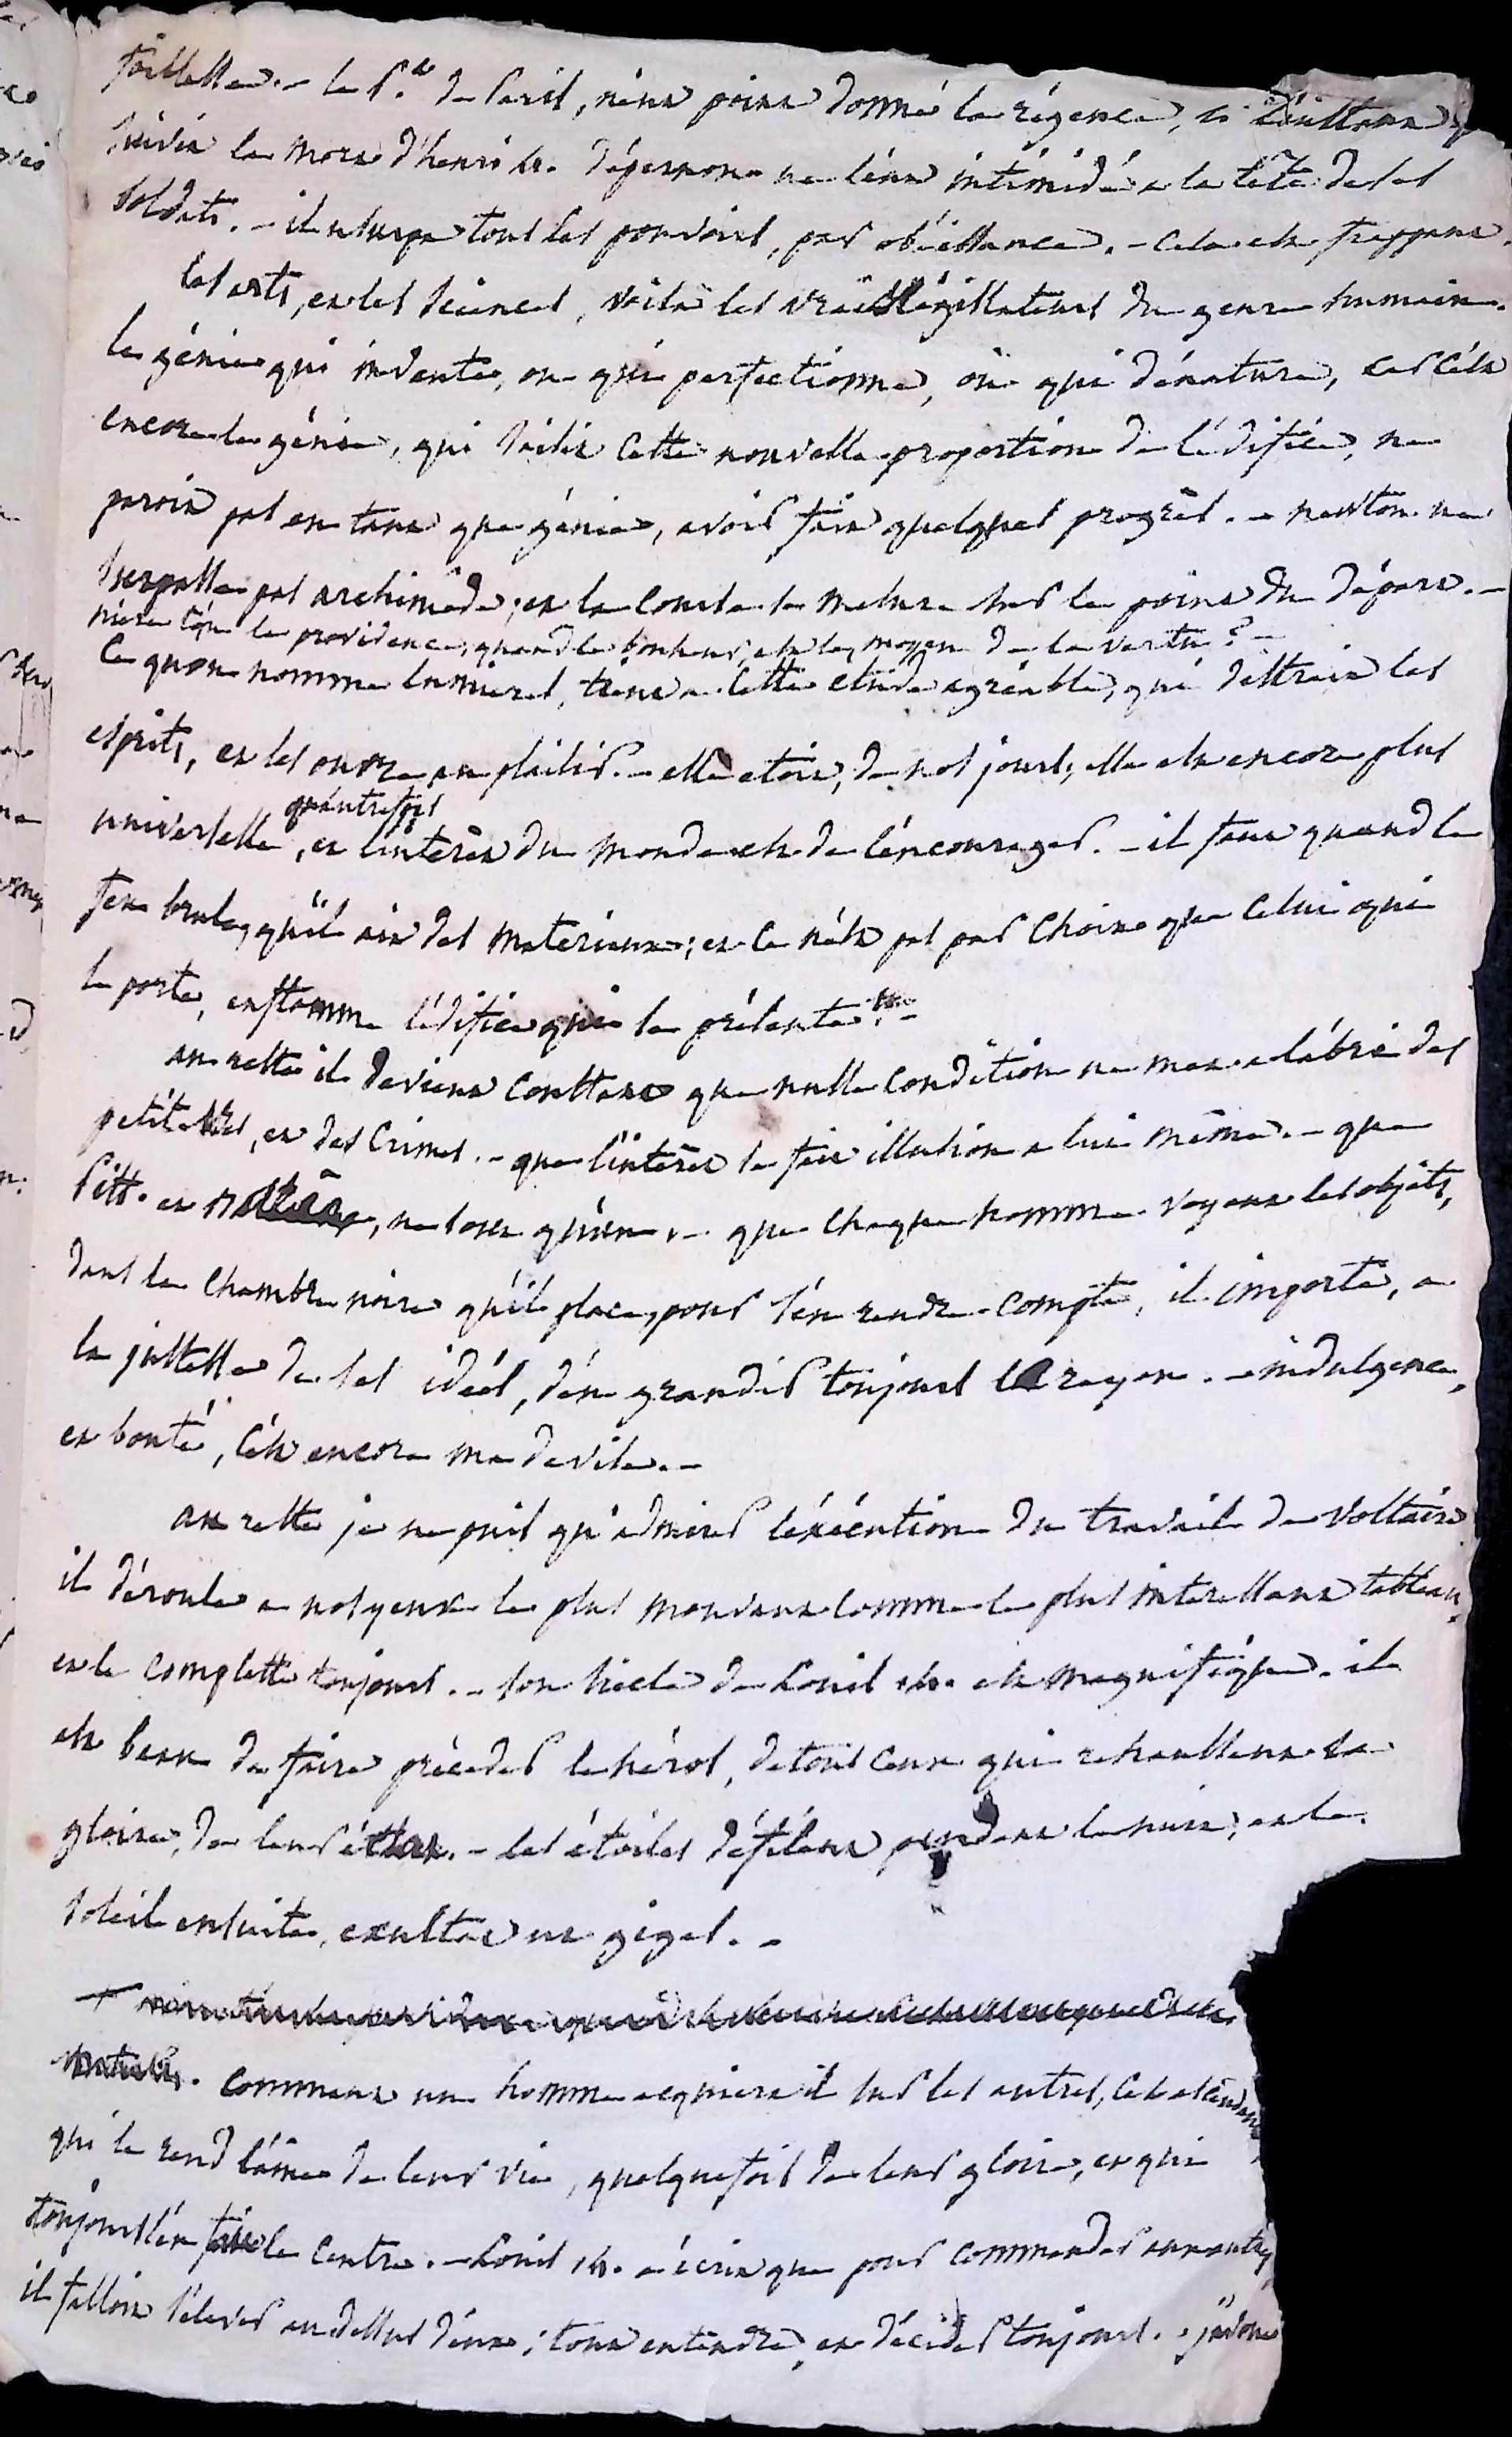 foiblesse. - le P.t de Paris, n'eut point donné la régence, si
suivit la mort d'henri 4. d'épernon ne l'eut intimidé a la tête de ses
soldats. - il usurpa tous les pouvoirs, par obéissance. - cela est frappant.
les arts, et les sciences, voila les vrais législateurs du genre humain.
le génie qui invente, ou qui perfectionne, ou qui dénature, car c'est
encore le génie, qui saisit cette nouvelle proportion de l'édifice, ne
paroit pas en tant que génie, avoir fait quelques progrès. - newton ne
surpasse pas archimède; et la course se mesure sur le point du départ. -
nier la providence, quand le bonheur, est le moyen de la vertu? -
ce qu'on nomme lumieres, tient a cette etude agréable, qui distrait les
esprits, et les ouvre au plaisir. - elle etoit, de nos jours, elle est encore plus
qu'autrefois
universelle, et l'intérêt du monde est de l'encourager. - il faut quand le
feu brule, qu'il ait des materiaux; et ce n'est pas par choix que celui qui
le porte, enflamme l'édifice qui le présente. -
au reste il devient constant que nulle condition ne met a l'abri des
petitesses, et des crimes. - que l'intérêt se fait illusion a lui même. - que
Pitt. et, ne sont qu'un. - que chaque homme voyant les objets,
dans la chambre noire qu'il place, pour s'en rendre compte, il importe, a
la justesse de ses idées, d'en grandir toujours le rayon. - indulgence,
et bonté, c'est encore ma devise. -
au reste je ne puis qu'admirer l'exécution du travail de Voltaire
il déroule a nos yeux le plus mouvant comme le plus interessant tableau,
et le complette toujours. - son siècle de Louis 14. est magnifique. il
est beau de faire précéder le héros, de tous ceux qui rehaussent sa
gloire, de leur éclat. - les étoiles défilent pendant la nuit, et le
soleil ensuite, exultat ut gigas. -
comment un homme acquiert il sur les autres, cet ascendant
qui le rend l'âme de leur vie, quelquefois de leur gloire, et qui
toujours l'en fait le centre. - Louis 14. a écrit que pour commander aux autres
il falloit s'élever au dessus d'eux; tout entendre, et décider toujours. - j'avoue